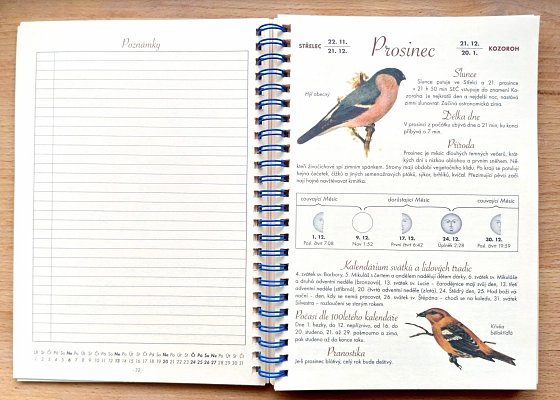 Poznámky
Út St Čt Pá So Ne Po Út St Čt Pá So Ne Po Út St Čt Pá So Ne Po Út St Čt Pá So Ne Po Út St Čt
1 2 3 4 5 6 7 8 9 10 11 12 13 14 15 16 17 18 19 20 21 22 23 24 25 26 27 28 29 30 31
STŘELEC 22. 11. 21. 12.
Prosinec
21. 12. 20. 1. KOZOROH
Hýl obecný
Slunce
Slunce putuje ve Střelci a 21. prosince
v 21 h 50 min SEČ vstupuje do znamení Ko-
zoroha. Je nejkratší den a nejdelší noc, nastává
zimní slunovrat. Začíná astronomická zima.
Délka dne
V prosinci z počátku ubývá dne o 21 min, ku konci
přibývá o 7 min.
Příroda
Prosinec je měsíc dlouhých temných večerů, krát-
kých dní s nízkou oblohou a prvním sněhem. Ně-
kteří živočichové spí zimním spánkem. Stromy mají období vegetačního klidu. Po kraji se potulují
hejna čečetek, čížků a jiných semenožravých ptáků, sýkor, brhlíků, kvíčal. Přezimující pěvci začí-
nají hojně navštěvovat krmítka.
couvající Měsíc
dorůstající Měsíc
couvající Měsíc
1. 12. 9. 12. 17. 12. 24. 12. 30. 12.
Posl. čtvrť 7:08 Nov 1:52 První čtvrť 6:42 Úplněk 2:28 Posl. čtvrť 19:59
Kalendárium svátků a lidových tradic
4. svátek sv. Barbory, 5. Mikuláš s čertem a andělem nadělují dětem dárky, 6. svátek sv. Mikuláše
a druhá adventní neděle (bronzová), 13. svátek sv. Lucie – čarodějnice mají svůj den, 13. třetí
adventní neděle (stříbrná), 20. čtvrtá adventní neděle (zlatá), 24. Štědrý den, 25. Hod boží vá-
noční – den, kdy se nemá pracovat, 26. svátek sv. Štěpána – chodí se na koledu, 31. svátek
Silvestra – rozloučení se starým rokem.
Počasí dle 100letého kalendáře
Dne 1. hezky, do 12. nepříznivo, od 16. do
20. studeno, 21. až 29. pošmourno a zima,
pak studeno až do konce roku.
Pranostika
Je-li prosinec blátivý, celý rok bude deštivý.
Křivka
bělokřídlá